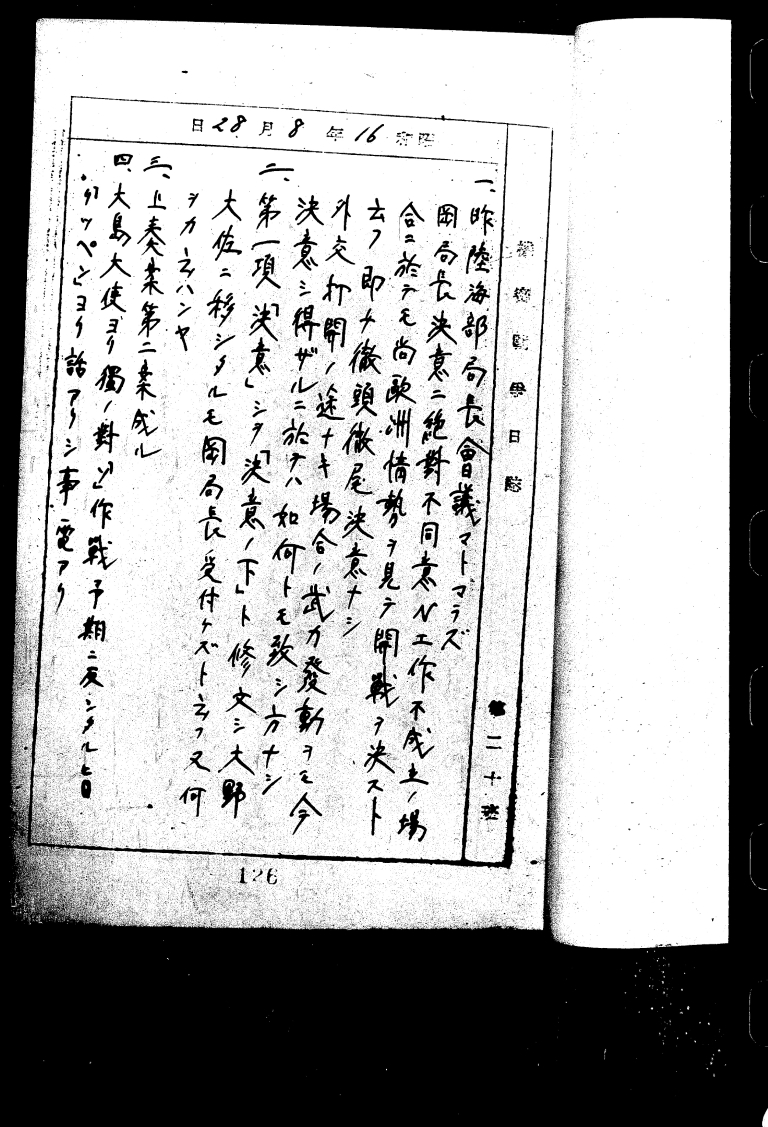 機密戰爭日誌
第二十班
昭和16年8月28日
一、昨陸海部局長會議マトマラズ
岡局長決意ニ絶對不同意N工作不成立ノ場
合ニ於テモ尚歐洲情勢ヲ見テ開戰ヲ決スト
云フ即チ徹頭徹尾決意ナシ
外交打開ノ途ナキ場合ノ武力發動ヲモ今
決意シ得ザルニ於テハ如何トモ致シ方ナシ
二、第一項「決意」シヲ「決意ノ下」ト修文シ大野
大佐ニ移シタルモ岡局長受付ケズト云フ又何
ヲカ云ハンヤ
三、上奏案第二案成ル
四、大島大使ヨリ獨ノ對「ソ」作戰予期ニ反シタル旨
「リッペン」ヨリ話アリシ事電アリ
126